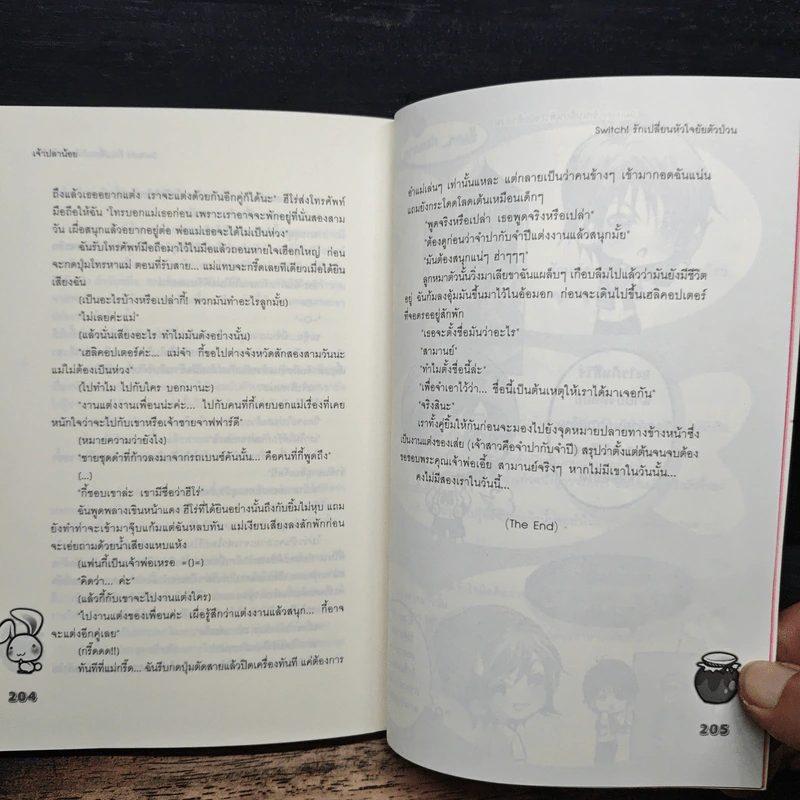 เจ้าปลาน้อย
ถึงแล้วเธออยากแต่ง เราจะแต่งด้วยกันอีกคู่ก็ได้นะ" ฮีโร่ส่งโทรศัพท์
มือถือให้ฉัน "โทรบอกแม่เธอก่อน เพราะเราอาจจะพักอยู่ที่นั่นสองสาม
วัน เผื่อสนุกแล้วอยากอยู่ต่อ พ่อแม่เธอจะได้ไม่เป็นห่วง"
ฉันรับโทรศัพท์มือถือมาไว้ในมือแล้วถอนหายใจเฮือกใหญ่ ก่อน
จะกดปุ่มโทรหาแม่ ตอนที่รับสาย... แม่แทบจะกรี๊ดเลยทีเดียวเมื่อได้ยิน
เสียงฉัน
(เป็นอะไรบ้างหรือเปล่ากี้! พวกมันทำอะไรลูกมั้ย)
"ไม่เลยค่ะแม่"
(แล้วนั่นเสียงอะไร ทำไมมันดังอย่างนั้น)
"เฮลิคอปเตอร์ค่ะ... แม่จ๋า กี้ขอไปต่างจังหวัดสักสองสามวันนะ
แม่ไม่ต้องเป็นห่วง"
(ไปทำไม ไปกับใคร บอกมานะ)
"งานแต่งงานเพื่อนน่ะค่ะ... ไปกับคนที่กี้เคยบอกแม่เรื่องที่เคย
หนักใจว่าจะไปกับเขาหรือเจ้าชายจาฟฟาร์ดี"
(หมายความว่ายังไง)
"ชายชุดดำที่ก้าวลงมาจากรถเบนซ์คันนั้น... คือคนที่กี้พูดถึง"
(...)
"กี้ชอบเขาล่ะ เขามีชื่อว่าฮีโร่"
ฉันพูดพลางเขินหน้าแดง ฮีโร่ที่ได้ยินอย่างนั้นถึงกับยิ้มไม่หุบ แถม
ยังทำท่าจะเข้ามาจุ๊บแก้มแต่ฉันหลบทัน แม่เงียบเสียงลงสักพักก่อน
จะเอ่ยถามด้วยน้ำเสียงแหบแห้ง
(แฟนกี้เป็นเจ้าพ่อเหรอ =()=)
"คิดว่า... ค่ะ"
(แล้วกี้กับเขาจะไปงานแต่งใคร)
"ไปงานแต่งของเพื่อนค่ะ เผื่อรู้สึกว่าแต่งงานแล้วสนุก... กี้อาจ
จะแต่งอีกคู่เลย"
(กรี๊ดดด!!)
ทันทีที่แม่กรี๊ด... ฉันรีบกดปุ่มตัดสายแล้วปิดเครื่องทันที แค่ต้องการ
204
Switch! รักเปลี่ยนหัวใจยัยตัวป่วน
อำแม่เล่นๆ เท่านั้นแหละ แต่กลายเป็นว่าคนข้างๆ เข้ามากอดฉันแน่น
แถมยังกระโดดโลดเต้นเหมือนเด็กๆ
"พูดจริงหรือเปล่า เธอพูดจริงหรือเปล่า"
"ต้องดูก่อนว่าจำปากับจำปีแต่งงานแล้วสนุกมั้ย"
"มันต้องสนุกแน่ๆ ฮ่าๆๆๆ"
ลูกหมาตัวนั้นวิ่งมาเลียขาฉันแผล็บๆ เกือบลืมไปแล้วว่ามันยังมีชีวิต
อยู่ ฉันก้มลงอุ้มมันขึ้นมาไว้ในอ้อมอก ก่อนจะเดินไปขึ้นเฮลิคอปเตอร์
ที่จอดรออยู่สักพัก
"เธอจะตั้งชื่อมันว่าอะไร"
"สามานย์"
"ทำไมตั้งชื่อนี้ล่ะ"
"เพื่อจำเอาไว้ว่า... ชื่อนี้เป็นต้นเหตุให้เราได้มาเจอกัน"
"จริงสินะ"
เราทั้งคู่ยิ้มให้กันก่อนจะมองไปยังจุดหมายปลายทางข้างหน้าซึ่ง
เป็นงานแต่งของเสี่ย (เจ้าสาวคือจำปากับจำปี) สรุปว่าตั้งแต่ต้นจนจบต้อง
ขอขอบพระคุณเจ้าพ่อเอี้ย สามานย์จริงๆ หากไม่มีเขาในวันนั้น...
คงไม่มีสองเราในวันนี้...
(The End)
205